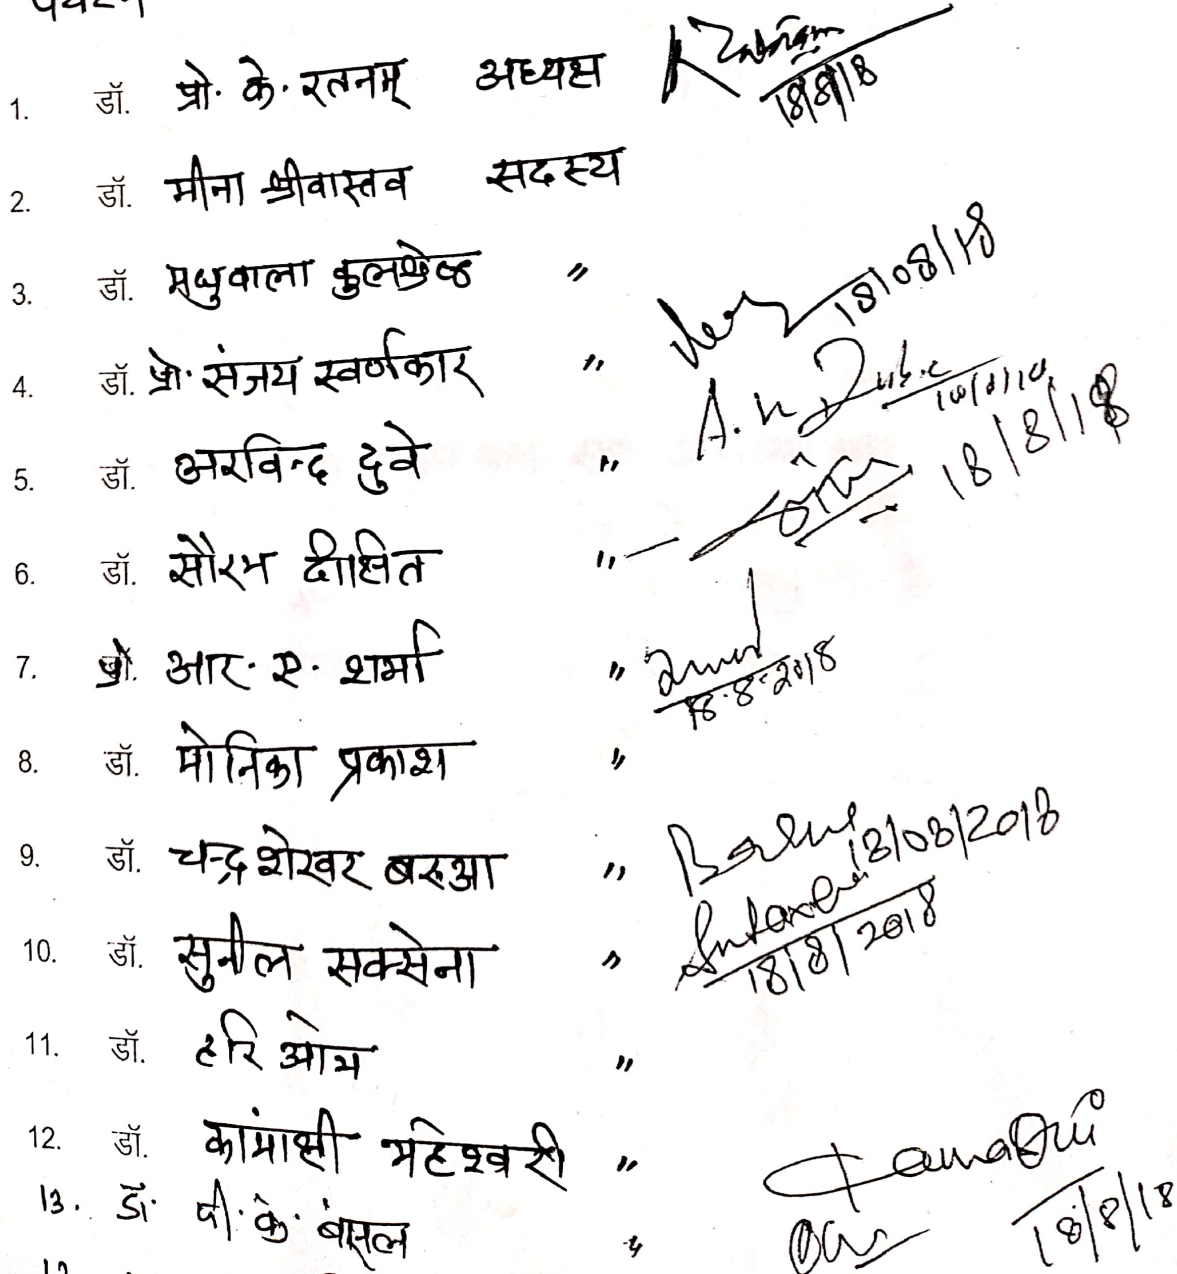 1. डॉ. प्रो. के. रतनम् अध्यक्ष 18/8/18
2. डॉ. मीना श्रीवास्तव सदस्य
3. डॉ. मधुवाला कुलश्रेष्ठ " 18/08/18
4. डॉ. प्रो. संजय स्वर्णकार " A.
5. डॉ. अरविन्द दुवे " 18/8/18
6. डॉ. सौरभ दीक्षित "
7. प्रो. आर. ए. शर्मा " 18.8.2018
8. डॉ. मोनिका प्रकाश "
9. डॉ. चन्द्र शेखर बरुआ " 18/08/2018
10. डॉ. सुनील सक्सेना " 18/8/2018
11. डॉ. हरि ओम "
12. डॉ. कांमाक्षी महेश्वरी "
13. डॉ. पी. के. बंसल " 18/8/18